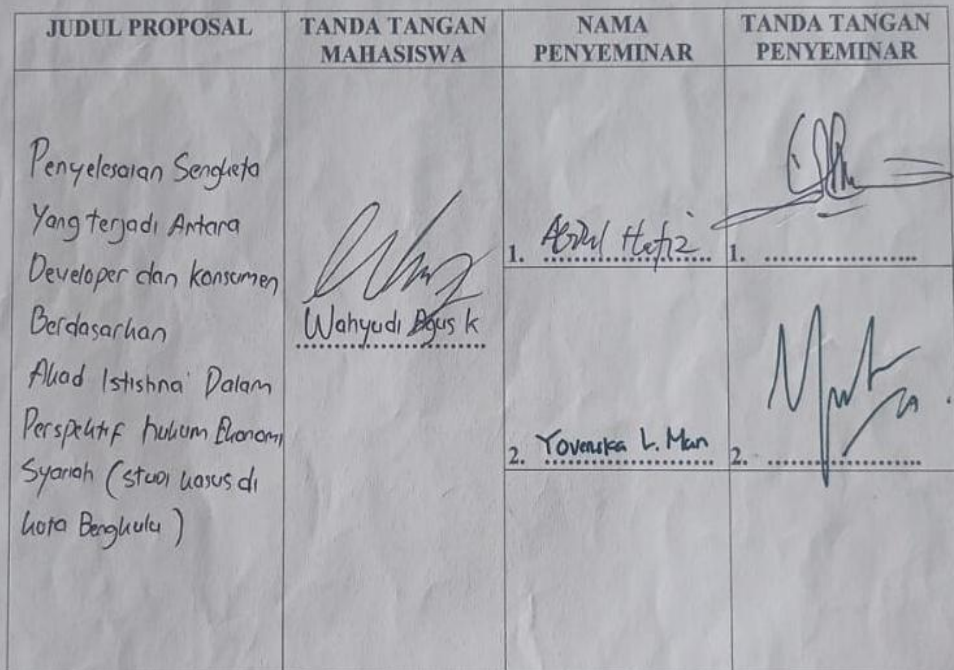 JUDUL PROPOSAL
TANDA TANGAN
MAHASISWA
NAMA
PENYEMINAR
TANDA TANGAN
PENYEMINAR
Penyelesaian Sengketa
Yang terjadi Antara
Developer dan konsumen
Berdasarkan
Akad Istishna' Dalam
Perspektif hukum Ekonomi
Syariah (studi kasus di
kota Bengkulu)
Wahyudi Agus k
1. Abdul Hafiz
1.
2. Yovenska L. Man
2.